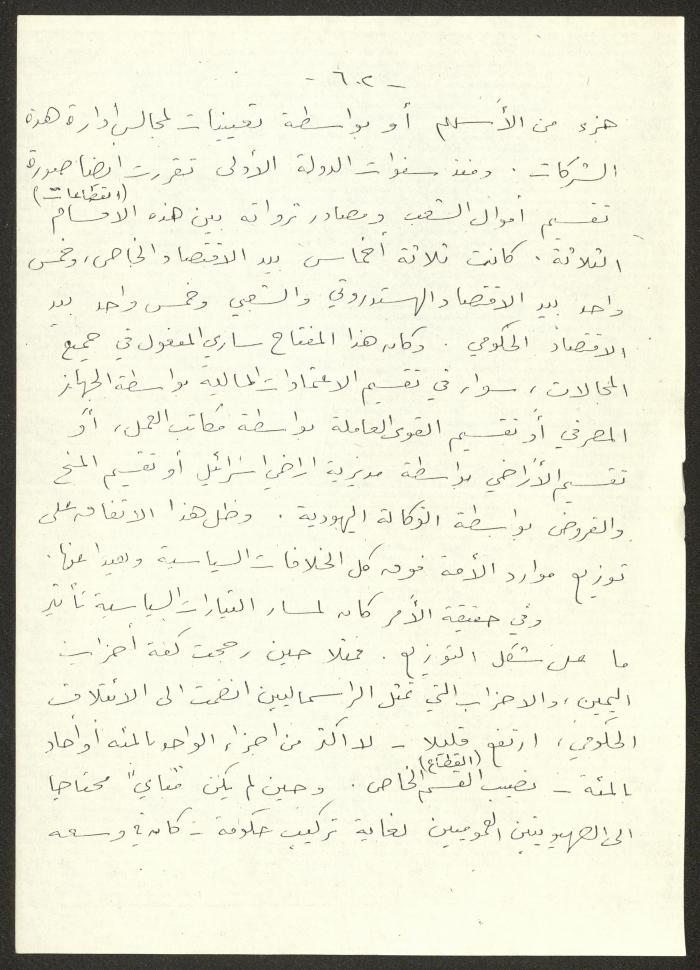 - ٦٠٢ -
جزء من الأسهم أو بواسطة تعيينات لمجالس إدارة هذه
الشركات . ومنذ سنوات الدولة الأولى تقررت ايضا صورة
(القطاعات)
تقسيم أموال الشعب ومصادر ثرواته بين هذه الاقسام
الثلاثة . كانت ثلاثة أخماس بيد الاقتصاد الخاص ، وخمس
واحد بيد الاقتصاد الهستدروتي والشعبي وخمس واحد بيد
الاقتصاد الحكومي . وكان هذا المفتاح ساري المفعول في جميع
المجالات ، سواء في تقسيم الاعتمادات المالية بواسطة الجهاز
المصرفي أو تقسيم القوى العاملة بواسطة مكاتب العمل ، أو
تقسيم الأراضي بواسطة مديرية اراضي اسرائيل أو تقسيم المنح
والقروض بواسطة الوكالة اليهودية . وظل هذا الاتفاق على
توزيع موارد الأمة فوق كل الخلافات السياسية وبعيدا عنها .
وفي حقيقة الأمر كان لمسار التيارات السياسية تأثير
ما على شكل التوزيع . فمثلا حين رجحت كفة أحزاب
اليمين ، والاحزاب التي تمثل الرأسماليين انضمت الى الائتلاف
الحكومي ، ارتفع قليلا - لا اكثر من اجزاء الواحد بالمئه أو آحاد
(القطاع)
بالمئة - نصيب القسم الخاص . وحين لم يكن "مباي" محتاجا
الى الصهيونيين العموميين لغاية تركيب حكومة - كان في وسعه